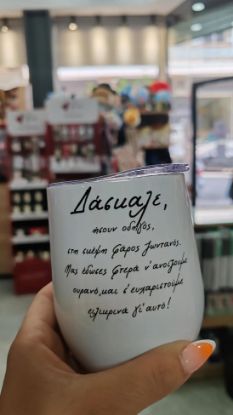 Δάσκαλε,
ήσουν οδηγός,
στη σκέψη φάρος ζωντανός.
Μας έδωσες φτερά ν' ανοίξουμε
ουρανό, και σ' ευχαριστούμε
ειλικρινά γι' αυτό!